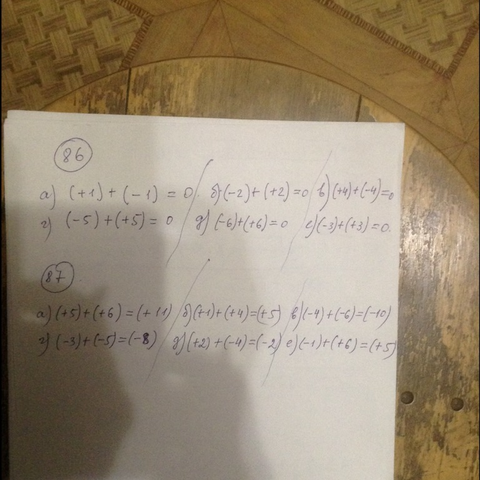 86
а) (+1) + (-1) = 0. б) (-2) + (+2) = 0 в) (+4) + (-4) = 0
г) (-5) + (+5) = 0 д) (-6) + (+6) = 0 е) (-3) + (+3) = 0.
87
а) (+5) + (+6) = (+11) б) (+1) + (+4) = (+5) в) (-4) + (-6) = (-10)
г) (-3) + (-5) = (-8) д) (+2) + (-4) = (-2) е) (-1) + (+6) = (+5)